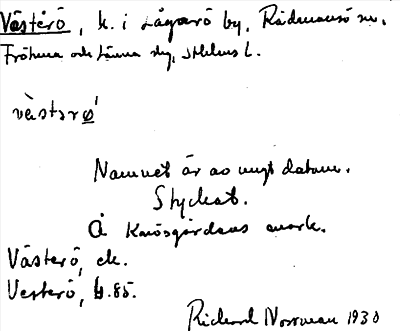 Västerö, k. i Lågarö by, Rådmansö sn.
Fröhuna och Länna skg, Sthlms l.
vèstərǿ
Namnet är av nytt datum.
Styckat.
Å Knösgårdens mark.
Västerö, ek.
Vesterö, h.85.
Richard Norrman 1930